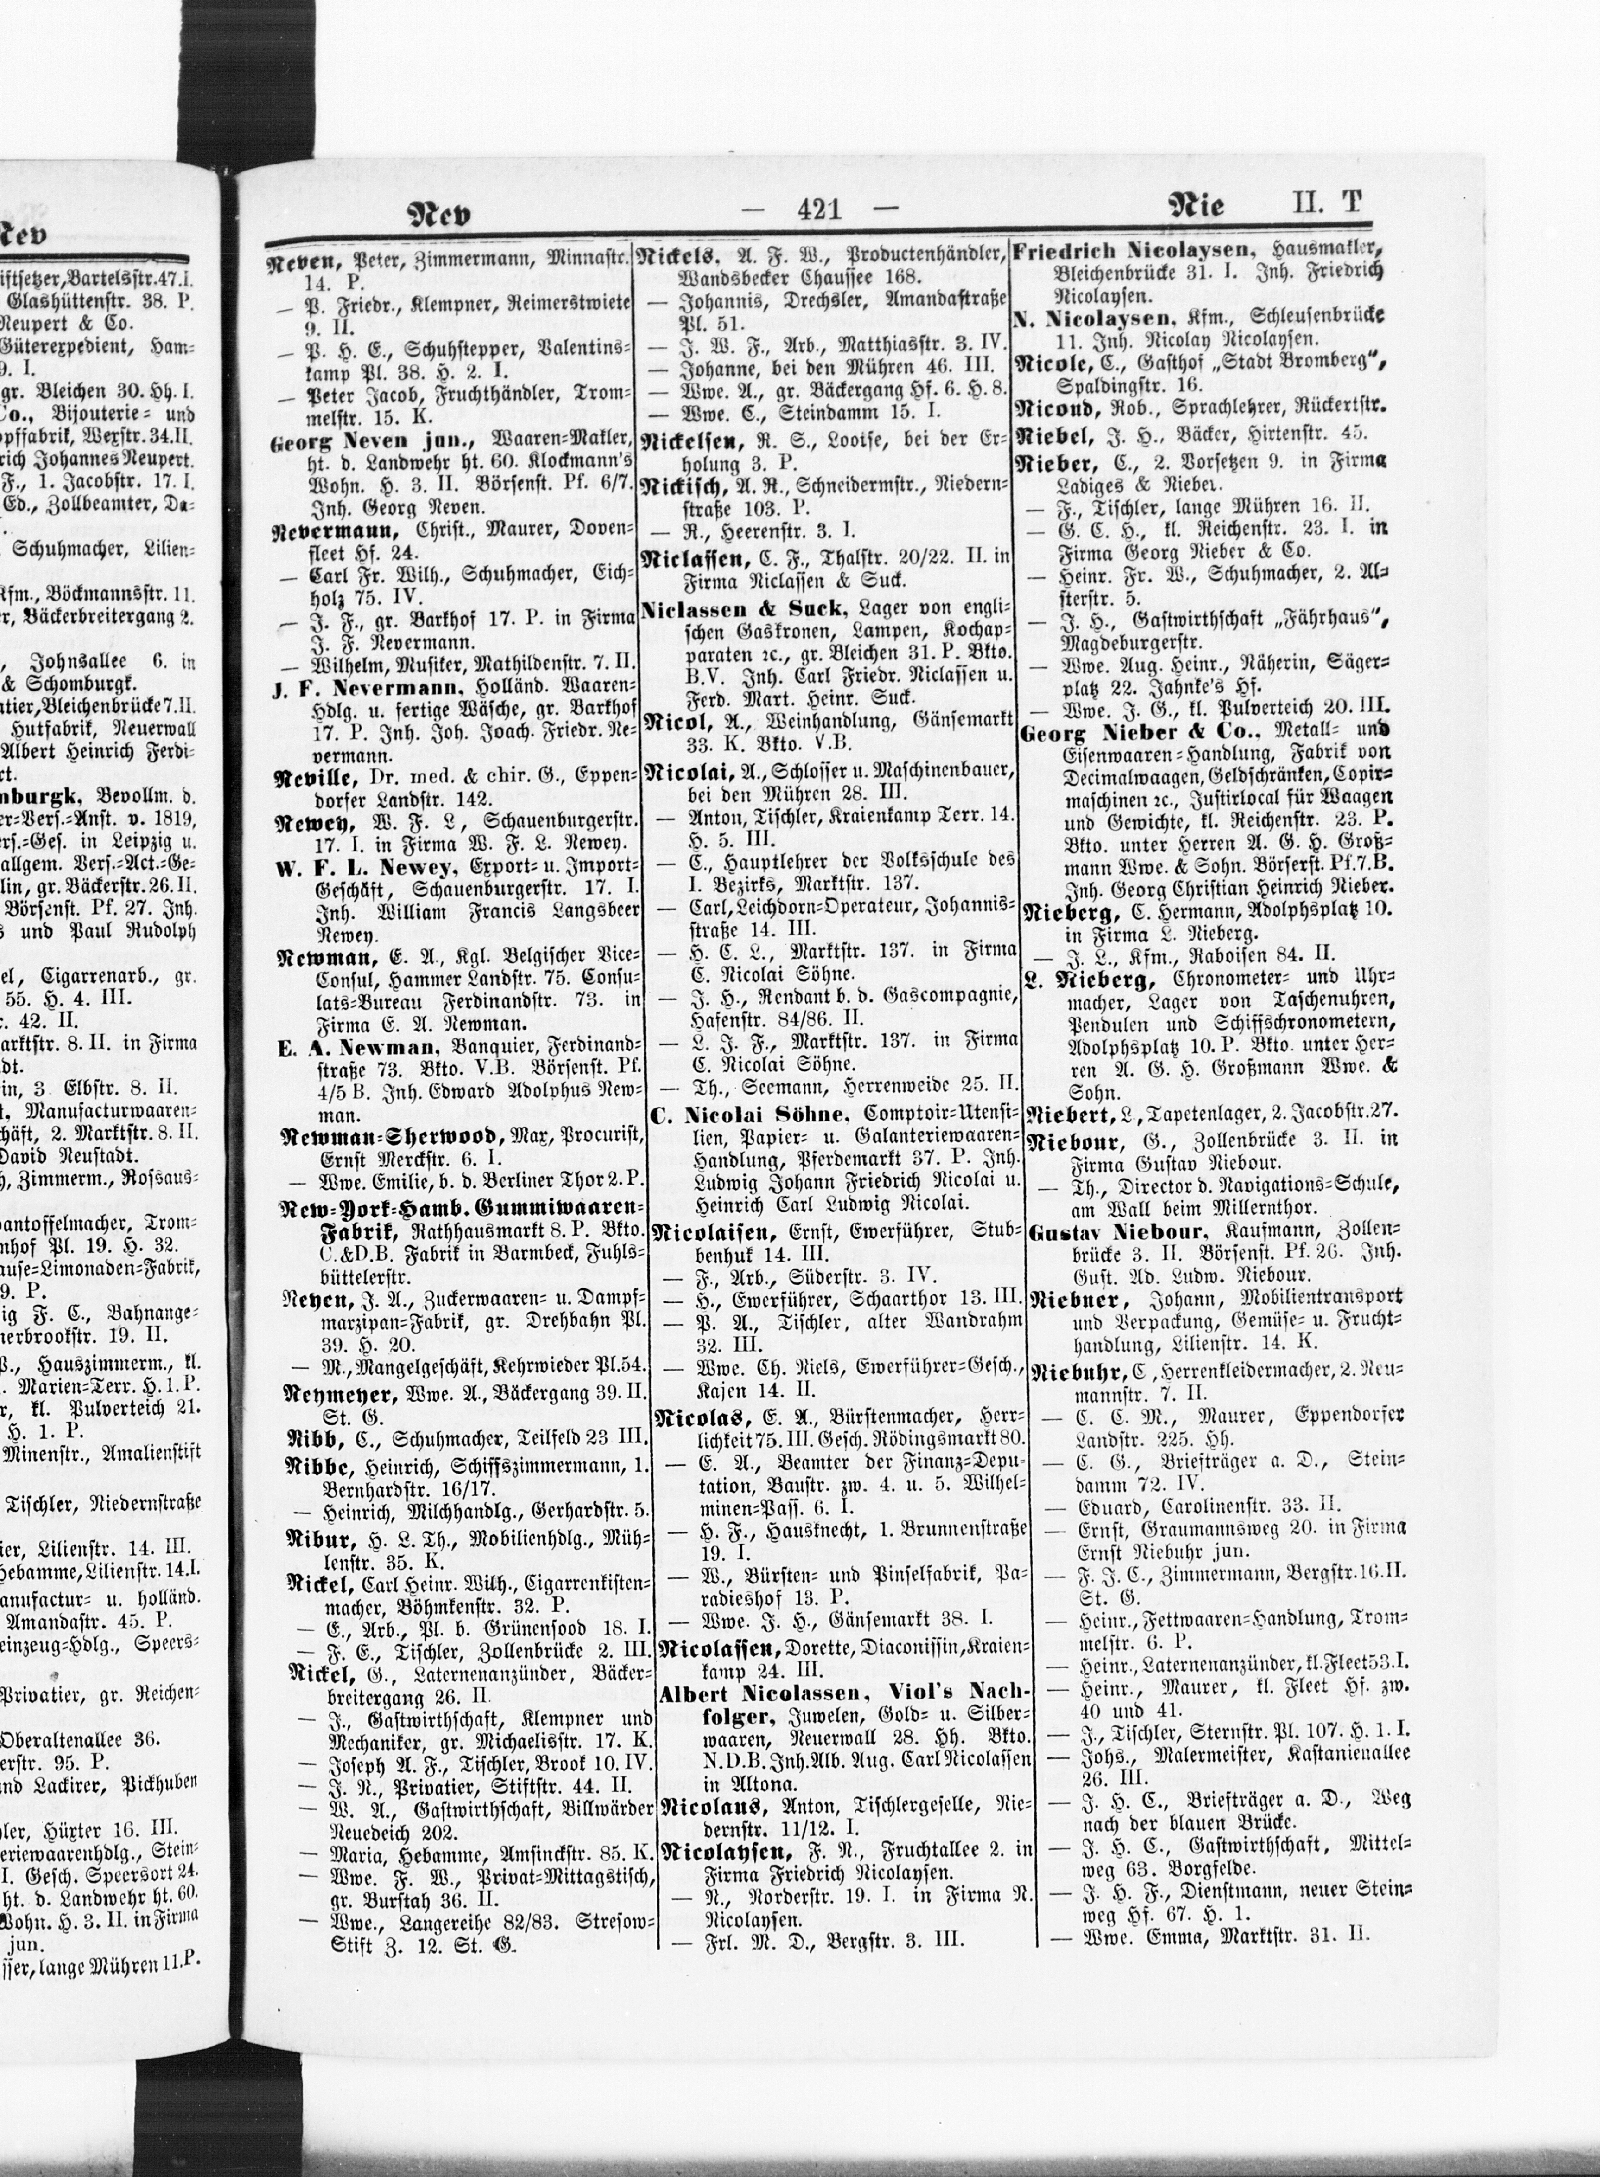 Nev
iftsetzer, Bartelsstr. 47. I.
Glashüttenstr. 38. P.
Neupert & Co.
Güterexpedient, Ham-
9. I.
gr. Bleichen 30. Hh. I.
Co., Bijouterie- und
opffabrik, Wexstr. 34. II.
rich Johannes Neupert.
F., 1. Jacobstr. 17. I.
Ed., Zollbeamter, Da-
Schuhmacher, Lilien-
Kfm., Böckmannsstr. 11.
er, Bäckerbreitergang 2.
, Johnsallee 6. in
& Schomburgk.
ntier, Bleichenbrücke 7. II.
Hutfabrik, Neuerwall
Albert Heinrich Ferdi-
rt.
mburgk, Bevollm. d.
er-Vers.-Anst. v. 1819,
ers.-Ges. in Leipzig u.
allgem. Vers.-Act.-Ge-
lin, gr. Bäckerstr. 26. II.
Börsenst. Pf. 27. Inh.
s und Paul Rudolph
el, Cigarrenarb., gr.
55. H. 4. III.
. 42. II.
arktstr. 8. II. in Firma
dt.
in, 3. Elbstr. 8. II.
t, Manufacturwaaren-
häft, 2. Marktstr. 8. II.
David Neustadt.
h, Zimmerm., Rossaus-
antoffelmacher, Trom-
nhof Pl. 19. H. 32.
ause-Limonaden-Fabrik,
9. P.
ig F. C., Bahnange-
nerbrookstr. 19. II.
P., Hauszimmerm., kl.
. Marien-Terr. H. 1. P.
r, kl. Pulverteich 21.
H. 1. P.
Minenstr., Amalienstift
Tischler, Niedernstraße
ier, Lilienstr. 14. III.
Hebamme, Lilienstr. 14. I.
anufactur- u. holländ.
Amandastr. 45. P.
einzeug-Hdlg., Speers-
Privatier, gr. Reichen-
Oberaltenallee 36.
erstr. 95. P.
und Lackirer, Pickhuben
ler, Hüxter 16. III.
eriewaarenhdlg., Stein-
I. Gesch. Speersort 24.
ht. d. Landwehr ht. 60.
Wohn. H. 3. II. in Firma
jun.
sser, lange Mühren 11. P.
Nev — 421 — Nie II. T
Neven, Peter, Zimmermann, Minnastr.
14. P.
— P. Friedr., Klempner, Reimerstwiete
9. II.
— P. H. E., Schuhstepper, Valentins-
kamp Pl. 38. H. 2. I.
— Peter Jacob, Fruchthändler, Trom-
melstr. 15. K.
Georg Neven jun., Waaren-Makler,
ht. d. Landwehr ht. 60. Klockmann's
Wohn. H. 3. II. Börsenst. Pf. 6/7.
Inh. Georg Neven.
Nevermann, Christ., Maurer, Doven-
fleet Hf. 24.
— Carl Fr. Wilh., Schuhmacher, Eich-
holz 75. IV.
— J. F., gr. Barkhof 17. P. in Firma
J. F. Nevermann.
— Wilhelm, Musiker, Mathildenstr. 7. II.
J. F. Nevermann, Holländ. Waaren-
Hdlg. u. fertige Wäsche, gr. Barkhof
17. P. Inh. Joh. Joach. Friedr. Ne-
vermann.
Neville, Dr. med. & chir. G., Eppen-
dorfer Landstr. 142.
Newey, W. F. L, Schauenburgerstr.
17. I. in Firma W. F. L. Newey.
W. F. L. Newey, Export- u. Import-
Geschäft, Schauenburgerstr. 17. I.
Inh. William Francis Langsbeer
Newey.
Newman, E. A., Kgl. Belgischer Vice-
Consul, Hammer Landstr. 75. Consu-
lats-Bureau Ferdinandstr. 73. in
Firma E. A. Newman.
E. A. Newman, Banquier, Ferdinand-
straße 73. Bkto. V.B. Börsenst. Pf.
4/5 B. Inh. Edward Adolphus New-
man.
Newman-Sherwood, Max, Procurist,
Ernst Merckstr. 6. I.
— Wwe. Emilie, b. d. Berliner Thor 2. P.
New-York-Hamb. Gummiwaaren-
Fabrik, Rathhausmarkt 8. P. Bkto.
C.&D.B. Fabrik in Barmbeck, Fuhls-
büttelerstr.
Neyen, J. A., Zuckerwaaren- u. Dampf-
marzipan-Fabrik, gr. Drehbahn Pl.
39. H. 20.
— M., Mangelgeschäft, Kehrwieder Pl. 54.
Neymeyer, Wwe. A., Bäckergang 39. II.
St. G.
Nibb, C., Schuhmacher, Teilfeld 23 III.
Nibbe, Heinrich, Schiffszimmermann, 1.
Bernhardstr. 16/17.
— Heinrich, Milchhandlg., Gerhardstr. 5.
Nibur, H. L. Th., Mobilienhdlg., Müh-
lenstr. 35. K.
Nickel, Carl Heinr. Wilh., Cigarrenkisten-
macher, Böhmkenstr. 32. P.
— E., Arb., Pl. b. Grünensood 18. I.
— F. E., Tischler, Zollenbrücke 2. III.
Nickel, G., Laternenanzünder, Bäcker-
breitergang 26. II.
— J., Gastwirthschaft, Klempner und
Mechaniker, gr. Michaelisstr. 17. K.
— Joseph A. F., Tischler, Brook 10. IV.
— J. N., Privatier, Stiftstr. 44. II.
— W. A., Gastwirthschaft, Billwärder
Neuedeich 202.
— Maria, Hebamme, Amsinckstr. 85. K.
— Wwe. F. W., Privat-Mittagstisch,
gr. Burstah 36. II.
— Wwe., Langereihe 82/83. Stresow-
Stift Z. 12. St. G.
Nickels, A. F. W., Productenhändler,
Wandsbecker Chaussee 168.
— Johannis, Drechsler, Amandastraße
Pl. 51.
— J. W. F., Arb., Matthiasstr. 3. IV.
— Johanne, bei den Mühren 46. III.
— Wwe. A., gr. Bäckergang Hf. 6. H. 8.
— Wwe. C., Steindamm 15. I.
Nickelsen, R. S., Lootse, bei der Er-
holung 3. P.
Nickisch, A. R., Schneidermstr., Niedern-
straße 103. P.
— R., Heerenstr. 3. I.
Niclassen, C. F., Thalstr. 20/22. II. in
Firma Niclassen & Suck.
Niclassen & Suck, Lager von engli-
schen Gaskronen, Lampen, Kochap-
paraten ꝛc., gr. Bleichen 31. P. Bkto.
B.V. Inh. Carl Friedr. Niclassen u.
Ferd. Mart. Heinr. Suck.
Nicol, A., Weinhandlung, Gänsemarkt
33. K. Bkto. V.B.
Nicolai, A., Schlosser u. Maschinenbauer,
bei den Mühren 28. III.
— Anton, Tischler, Kraienkamp Terr. 14.
H. 5. III.
— C., Hauptlehrer der Volksschule des
I. Bezirks, Marktstr. 137.
— Carl, Leichdorn-Operateur, Johannis-
straße 14. III.
— H. C. L., Marktstr. 137. in Firma
C. Nicolai Söhne.
— J. H., Rendant b. d. Gascompagnie,
Hafenstr. 84/86. II.
— L. J. F., Marktstr. 137. in Firma
C. Nicolai Söhne.
— Th., Seemann, Herrenweide 25. II.
C. Nicolai Söhne, Comptoir-Utensi-
lien, Papier- u. Galanteriewaaren-
Handlung, Pferdemarkt 37. P. Inh.
Ludwig Johann Friedrich Nicolai u.
Heinrich Carl Ludwig Nicolai.
Nicolaisen, Ernst, Ewerführer, Stub-
benhuk 14. III.
— F., Arb., Süderstr. 3. IV.
— H., Ewerführer, Schaarthor 13. III.
— P. A., Tischler, alter Wandrahm
32. III.
— Wwe. Ch. Niels, Ewerführer-Gesch.,
Kajen 14. II.
Nicolas, E. A., Bürstenmacher, Herr-
lichkeit 75. III. Gesch. Rödingsmarkt 80.
— E. A., Beamter der Finanz-Depu-
tation, Baustr. zw. 4. u. 5. Wilhel-
minen-Pass. 6. I.
— H. F., Hausknecht, 1. Brunnenstraße
19. I.
— W., Bürsten- und Pinselfabrik, Pa-
radieshof 13. P.
— Wwe. J. H., Gänsemarkt 38. I.
Nicolassen, Dorette, Diaconissin, Kraien-
kamp 24. III.
Albert Nicolassen, Viol's Nach-
folger, Juwelen, Gold- u. Silber-
waaren, Neuerwall 28. Hh. Bkto.
N.D.B. Inh. Alb. Aug. Carl Nicolassen
in Altona.
Nicolaus, Anton, Tischlergeselle, Nie-
dernstr. 11/12. I.
Nicolaysen, F. N., Fruchtallee 2. in
Firma Friedrich Nicolaysen.
— N., Norderstr. 19. I. in Firma N.
Nicolaysen.
— Frl. M. D., Bergstr. 3. III.
Friedrich Nicolaysen, Hausmakler,
Bleichenbrücke 31. I. Inh. Friedrich
Nicolaysen.
N. Nicolaysen, Kfm., Schleusenbrücke
11. Inh. Nicolay Nicolaysen.
Nicole, C., Gasthof „Stadt Bromberg",
Spaldingstr. 16.
Nicoud, Rob., Sprachlehrer, Rückertstr.
Niebel, J. H., Bäcker, Hirtenstr. 45.
Nieber, C., 2. Vorsetzen 9. in Firma
Ladiges & Nieber.
— F., Tischler, lange Mühren 16. II.
— G. C. H., kl. Reichenstr. 23. I. in
Firma Georg Nieber & Co.
— Heinr. Fr. W., Schuhmacher, 2. Al-
sterstr. 5.
— J. H., Gastwirthschaft „Fährhaus",
Magdeburgerstr.
— Wwe. Aug. Heinr., Näherin, Säger-
platz 22. Jahnke's Hf.
— Wwe. J. G., kl. Pulverteich 20. III.
Georg Nieber & Co., Metall- und
Eisenwaaren-Handlung, Fabrik von
Decimalwaagen, Geldschränken, Copir-
maschinen ꝛc., Justirlocal für Waagen
und Gewichte, kl. Reichenstr. 23. P.
Bkto. unter Herren A. G. H. Groß-
mann Wwe. & Sohn. Börserst. Pf. 7. B.
Inh. Georg Christian Heinrich Nieber.
Nieberg, C. Hermann, Adolphsplatz 10.
in Firma L. Nieberg.
— J. L., Kfm., Raboisen 84. II.
L. Nieberg, Chronometer- und Uhr-
macher, Lager von Taschenuhren,
Pendulen und Schiffschronometern,
Adolphsplatz 10. P. Bkto. unter Her-
ren A. G. H. Großmann Wwe. &
Sohn.
Niebert, L, Tapetenlager, 2. Jacobstr. 27.
Niebour, G., Zollenbrücke 3. II. in
Firma Gustav Niebour.
— Th., Director d. Navigations-Schule,
am Wall beim Millernthor.
Gustav Niebour, Kaufmann, Zollen-
brücke 3. II. Börsenst. Pf. 26. Inh.
Gust. Ad. Ludw. Niebour.
Niebuer, Johann, Mobilientransport
und Verpackung, Gemüse- u. Frucht-
handlung, Lilienstr. 14. K.
Niebuhr, C, Herrenkleidermacher, 2. Neu-
mannstr. 7. II.
— C. C. M., Maurer, Eppendorfer
Landstr. 225. Hh.
— C. G., Briefträger a. D., Stein-
damm 72. IV.
— Eduard, Carolinenstr. 33. II.
— Ernst, Graumannsweg 20. in Firma
Ernst Niebuhr jun.
— F. J. C., Zimmermann, Bergstr. 16. II.
St. G.
— Heinr., Fettwaaren-Handlung, Trom-
melstr. 6. P.
— Heinr., Laternenanzünder, kl. Fleet 53. I.
— Heinr., Maurer, kl. Fleet Hf. zw.
40 und 41.
— J., Tischler, Sternstr. Pl. 107. H. 1. I.
— Johs., Malermeister, Kastanienallee
26. III.
— J. H. C., Briefträger a. D., Weg
nach der blauen Brücke.
— J. H. C., Gastwirthschaft, Mittel-
weg 63. Borgfelde.
— J. H. F., Dienstmann, neuer Stein-
weg Hf. 67. H. 1.
— Wwe. Emma, Marktstr. 31. II.